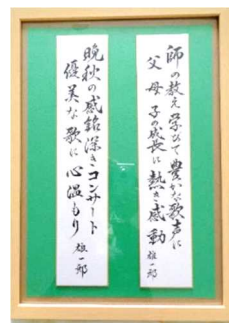 師の教え学びて豊かな歌声に
父母子の成長に熱き感動
雄一郎
晩秋の感銘深きコンサート
優美な歌に心温もり
雄一郎